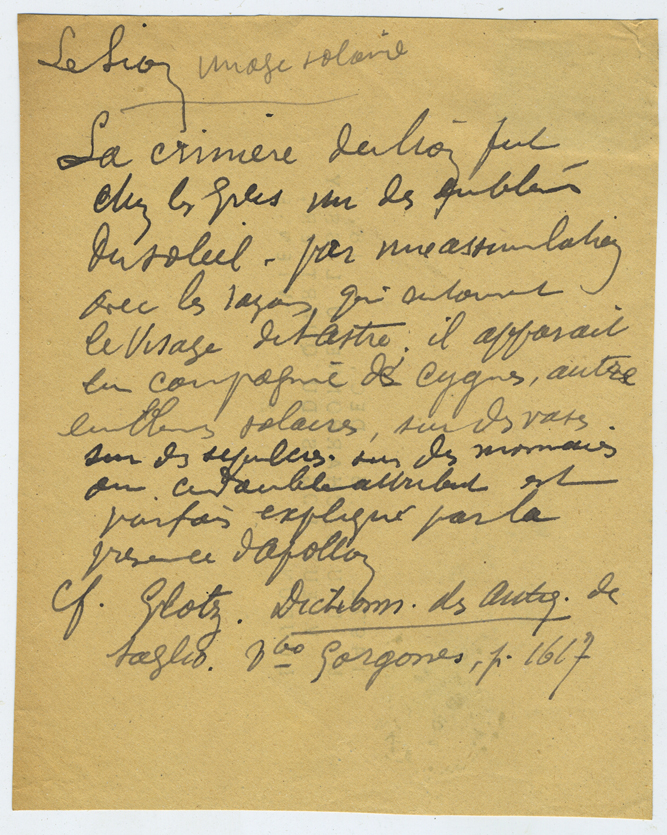 Le Lion image solaire
La crinière du lion fut
chez les Grecs un des emblèmes
du soleil. par une assimilation
avec les rayons qui entourent
le visage de l'astre. il apparait
en compagnie de cygnes, autre
emblème solaires, sur des vases
sur des sépulcres. sur des monnaies
ou ce double attribut est
parfois expliqué par la
présence d'Apollon
Cf. Glotz. Dictionn. des Antiq. de
Saglio. Vbo Gorgones, p. 1617